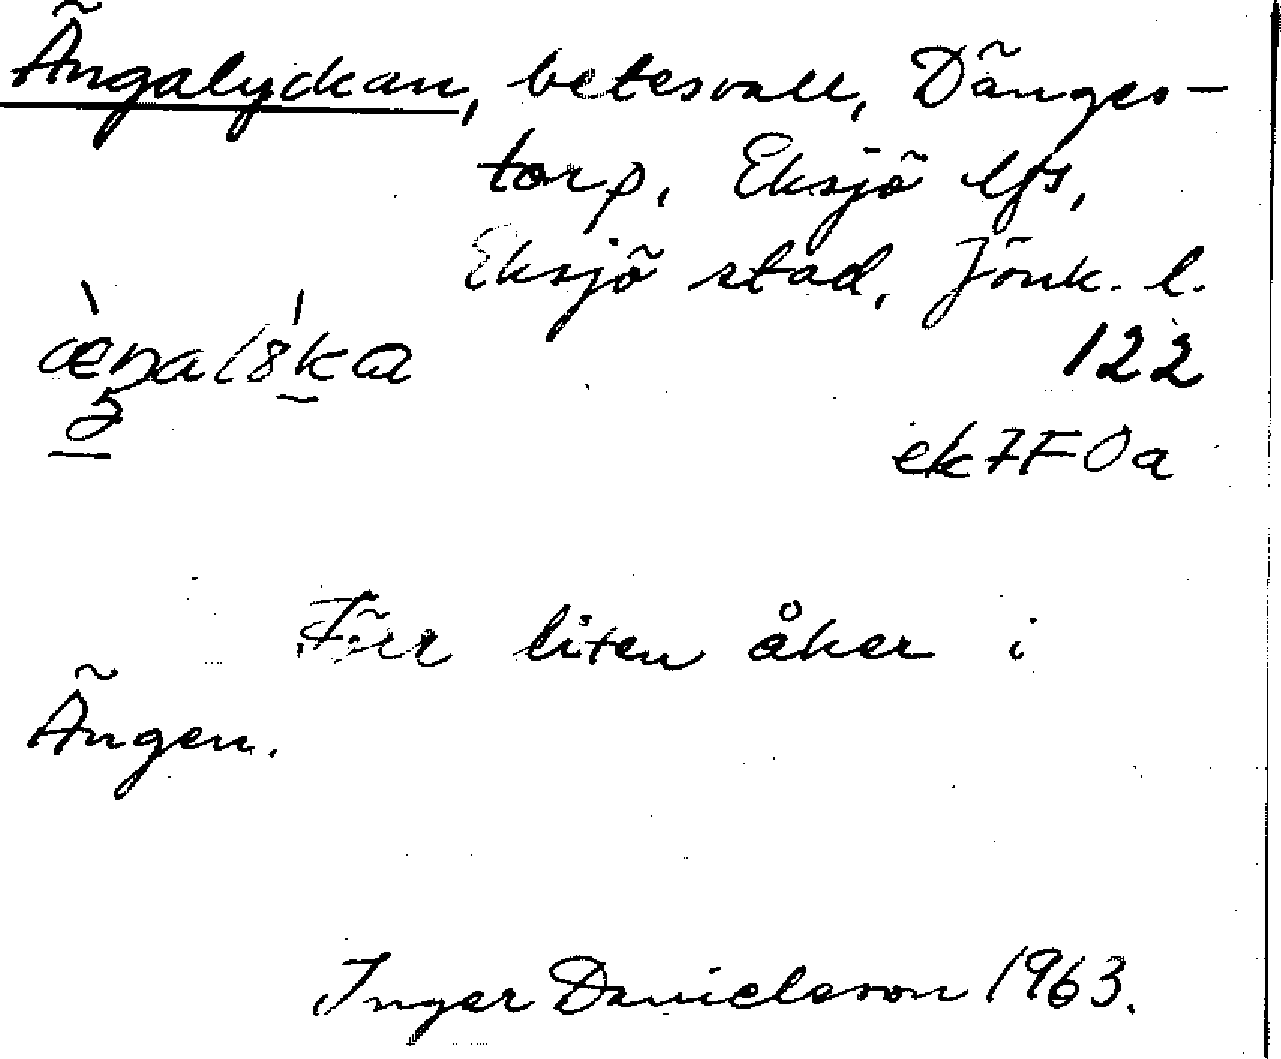 Ängalyckan, betesvall, Dänges-
torp, Eksjö lfs,
Eksjö stad, Jönk. l.
122
ek 7F 0a
Förr liten åker i
Ängen.
Inger Danielsson 1963.